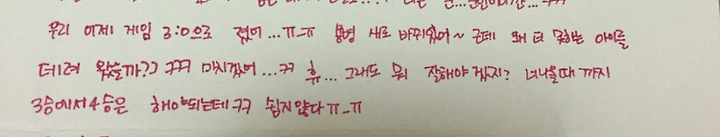 우리 어제 게임 3:0으로 졌어...ㅠ-ㅠ 용병 새로 바뀌었어~ 근데 왜 더 못하는 아이를
데려 왔을까?? ㅋㅋㅋ 미치겠어...ㅋㅋ 휴... 그래도 뭐 잘해야 겠지? 너나올때 까지
3승에서 4승은 해야되는데 ㅋㅋ 쉽지않다 ㅠ-ㅠ